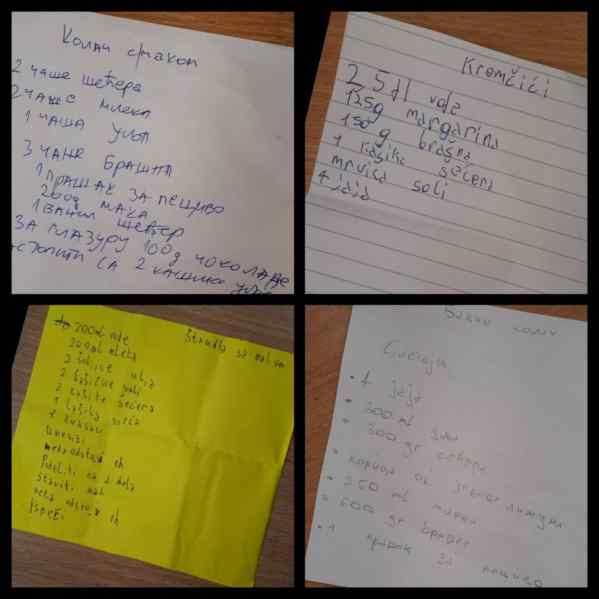 Колач с маком
2 чаше шећера
2 чаше млека
1 чаша уља
3 чаше брашна
1 прашак за пециво
200g мака
1 ванил шећер
За глазуру 100g чоколаде
истопити са 2 кашике уља
Kromčići
2,5 dl vode
125g margarina
150 g brašna
1 kašika šećera
mrvica soli
4 jaja
Štrudla sa makom
200ml vode
200ml mleka
2 kašike ulja
2 kašičice soli
2 kašike šećera
1 kašika
1 kvasac
umesiti
Podeliti na 2 dela
staviti mak
neka odstoji
ispeći
колач
1 јаје
200 ml уља
300 gr шећера
корица од лимуна
250 ml млека
600 gr брашна
1 прашак за пециво